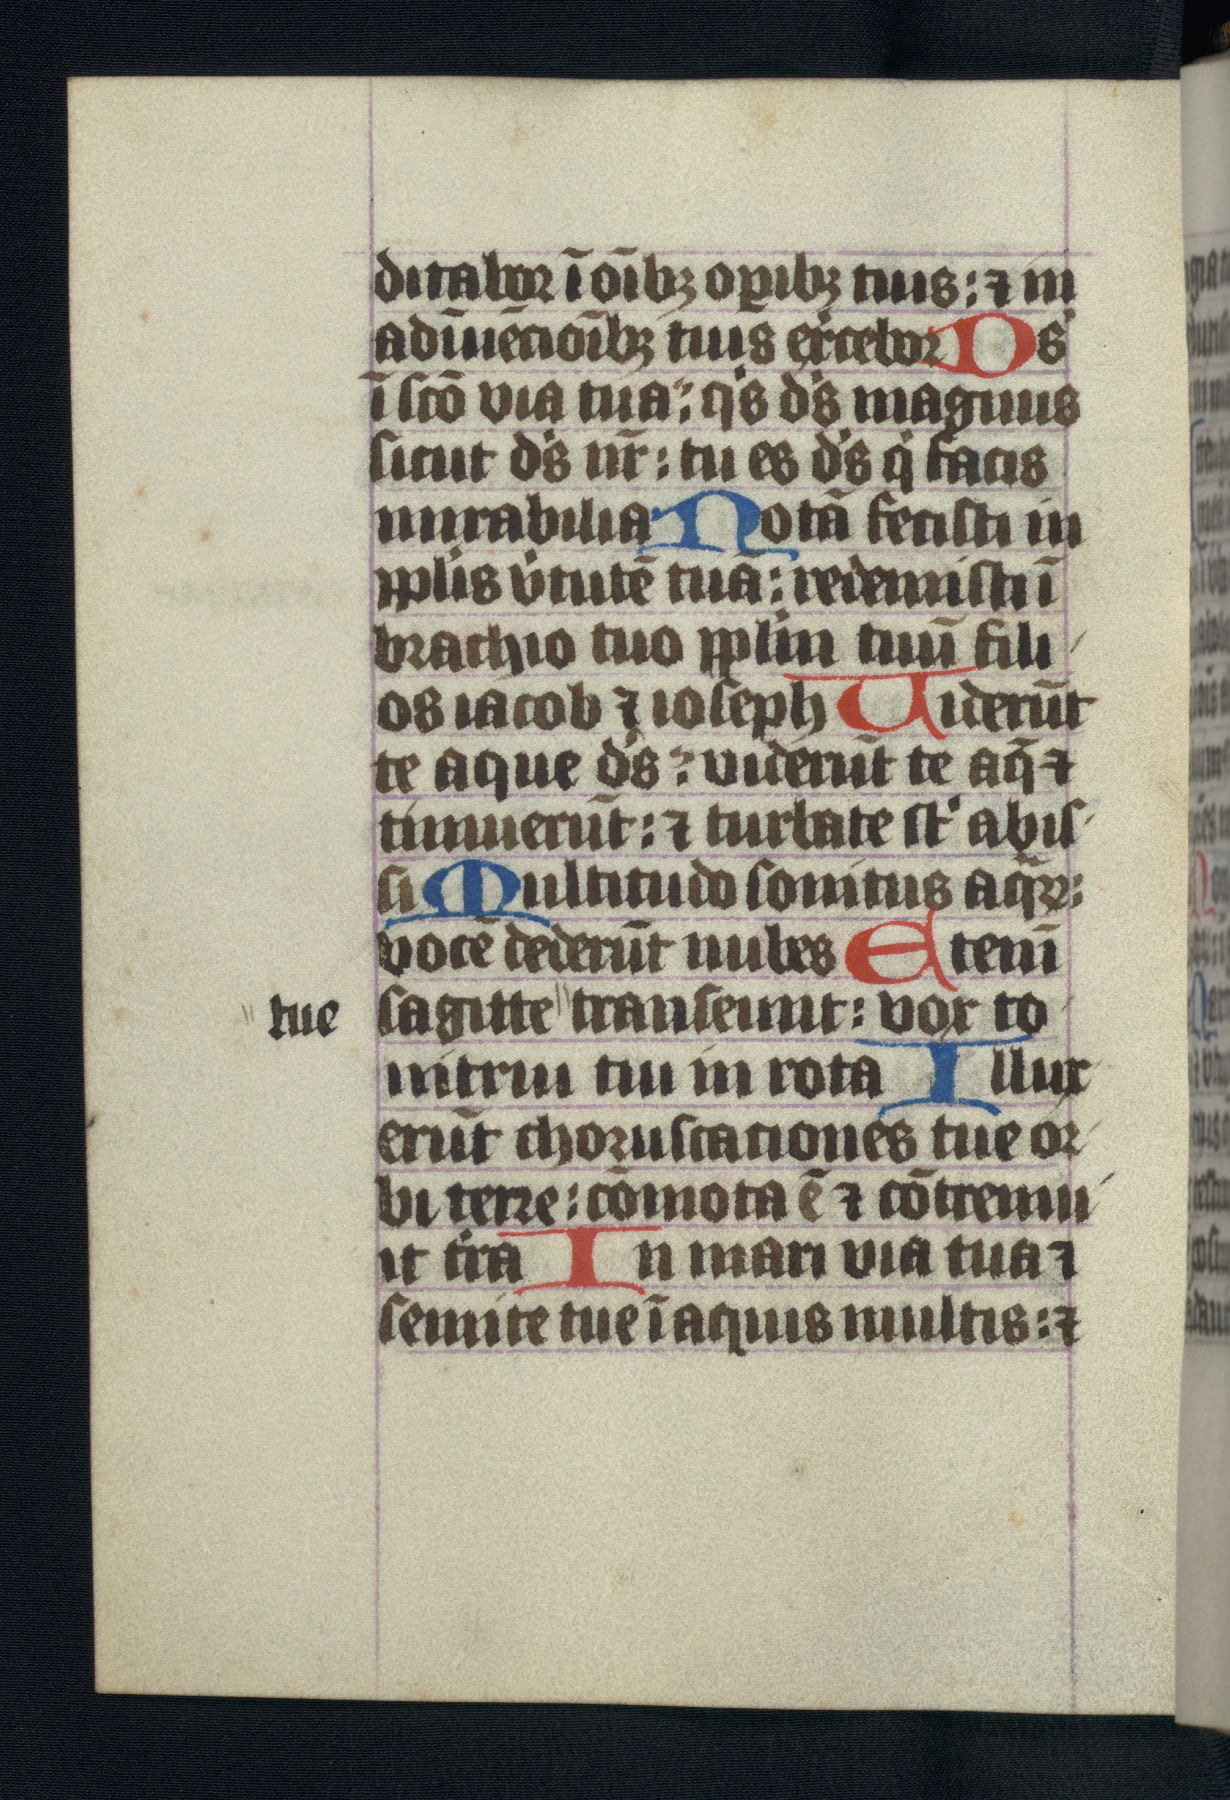 ditabor ī oīb⁊ oꝑib⁊ tuis: ⁊ in
adīuēcioīb⁊ tuis ex̾cebor Ds̾
ī sc̄o via tua: qͥs ds̾ magnus
sicut ds̾ nr̄: tu es ds̾ qͥ facis
mirabilia Notā fecisti in
pp̄lis v̾tutē tuā: redemisti ī
brachio tuo pp̄lm tuū fili
os iacob ⁊ ioseph Uiderūt
te aque ds̾: viderūt te aq̄ ⁊
timuerūt: ⁊ turbate st̾ abis
si Multitudo sonitus aqͣꝝ:
vocē dederūt nubes Etenī
sagitte " transeunt: vox to
" tue
nitrui tui in rota Illux
erūt choruscationes tue or
bi terre: cōmota ē ⁊ cōtremu
it tr̾a In mari via tua ⁊
semite tue ī aquis multis: ⁊